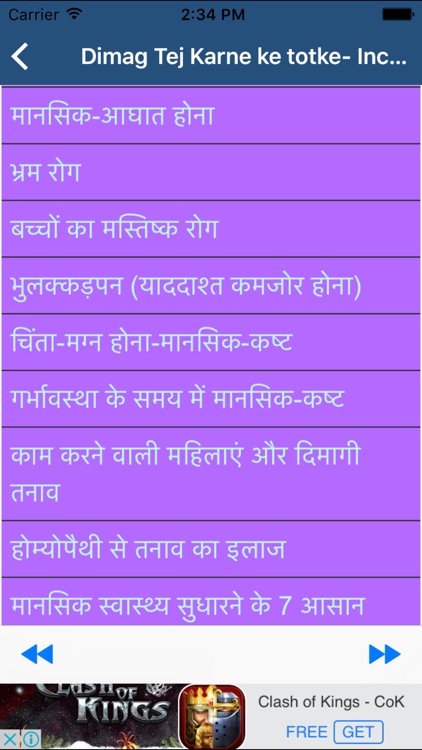 Carrier 2:34 PM
Dimag Tej Karne ke totke- Inc...
मानसिक-आघात होना
भ्रम रोग
बच्चों का मस्तिष्क रोग
भुलक्कड़पन (याददाश्त कमजोर होना)
चिंता-मग्न होना-मानसिक-कष्ट
गर्भावस्था के समय में मानसिक-कष्ट
काम करने वाली महिलाएं और दिमागी
तनाव
होम्योपैथी से तनाव का इलाज
मानसिक स्वास्थ्य सुधारने के 7 आसान
CLASH OF KINGS
Clash of Kings - CoK
FREE GET